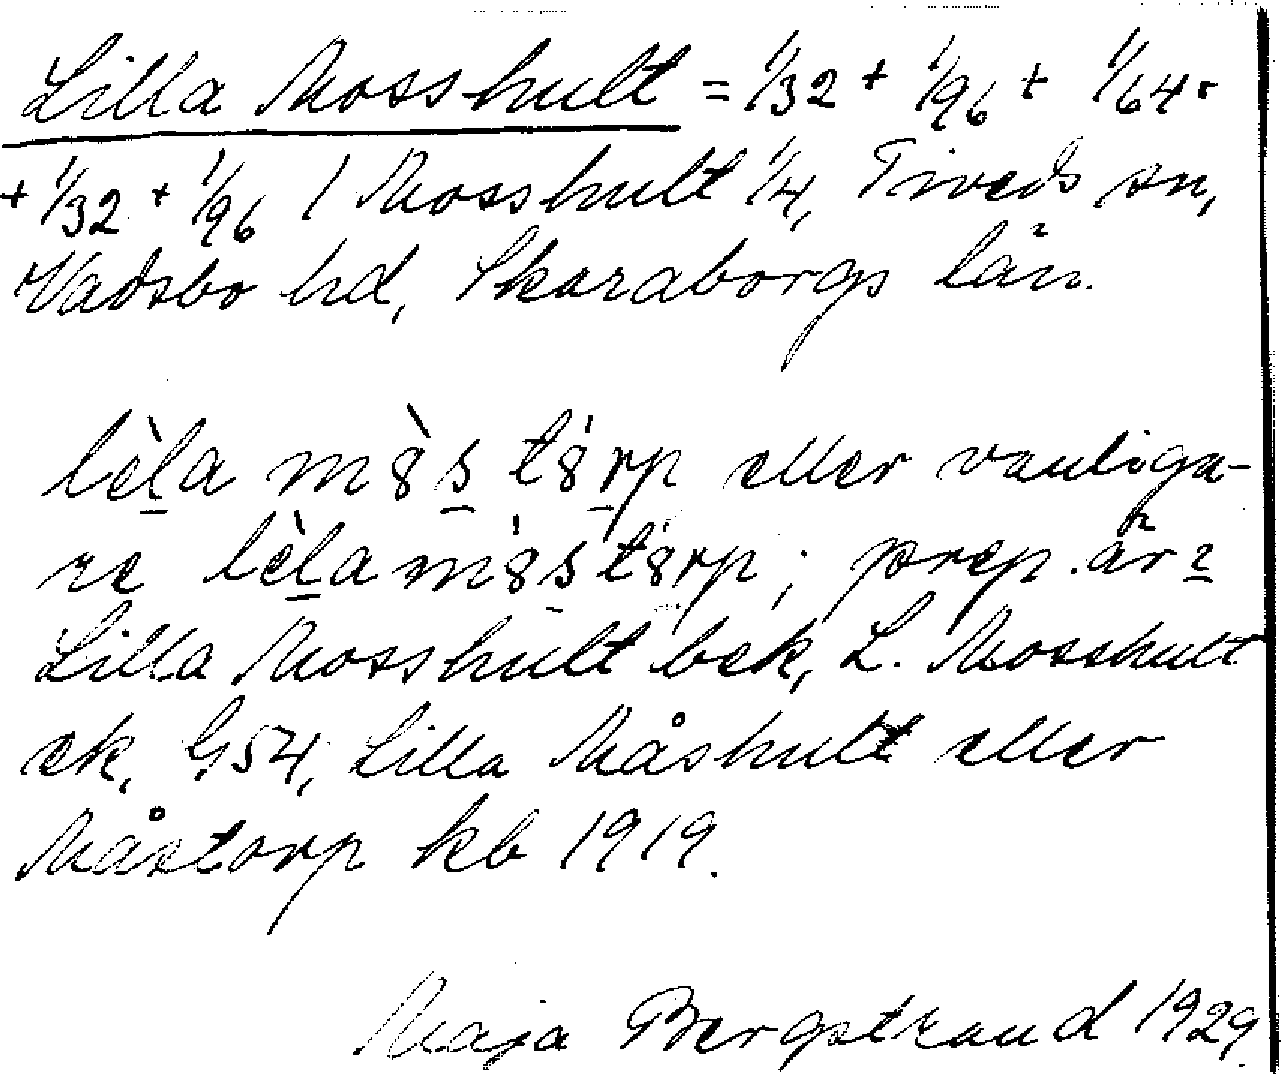 Lilla Mosshult = 1/32 + 1/96 + 1/64 +
+ 1/32 + 1/96 / Mosshult 1/4, Tiveds sn,
Vadsbo hd, Skaraborgs län.
lèl̠a m8̀s̠ t8́r̠p eller vanliga-
re lèl̠a m8́s̠ t8́rp; prep. 
Lilla Mosshult bek, L. Mosshult
ek, G54, Lilla Måshult eller
Måstorp kb 1919.
Maja Bergstrand 1929.